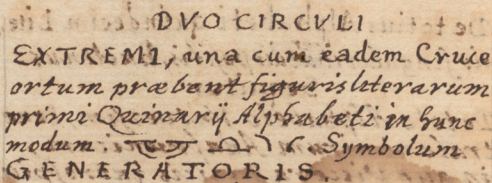 DVO CIRCVLI
EXTREMI, una cum eadem Cruce
ortum præbent figuris literarum
primi Quinarij Alphabeti in hunc
modum. Symbolum
GENERATORIS.